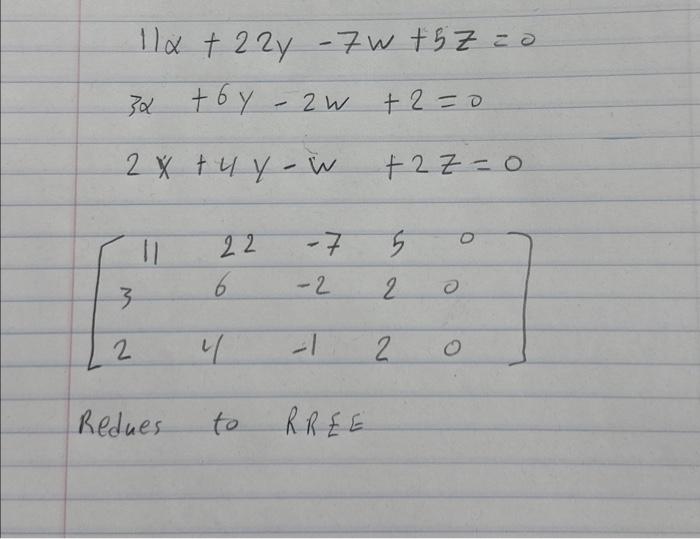 11x + 22y - 7w + 5z = 0
3x + 6y - 2w + 2 = 0
2x + 4y - w + 2z = 0
11 22 -7 5 0
3 6 -2 2 0
2 4 -1 2 0
Redues to RREE